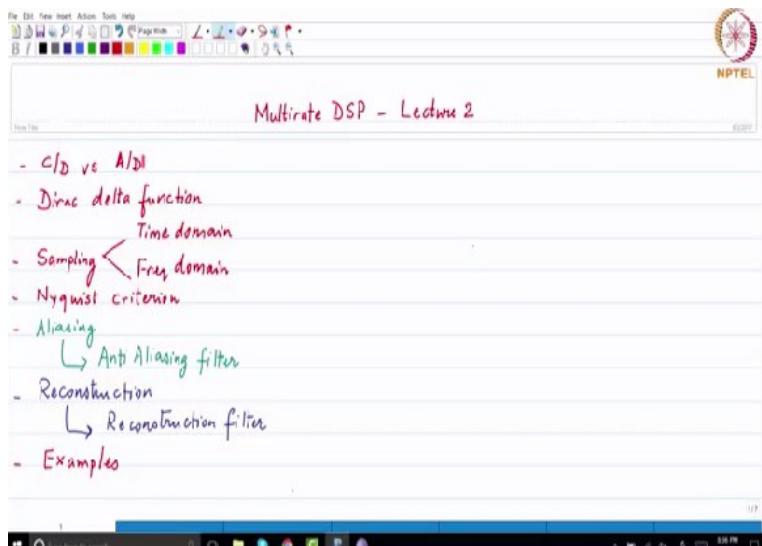 File Edit View Insert Action Tools Help
Page Width
B I
NPTEL
Multirate DSP - Lecture 2
Note Title
- C/D vs A/D
- Dirac delta function
- Sampling
Time domain
Freq domain
- Nyquist criterion
- Aliasing
Anti Aliasing filter
- Reconstruction
Reconstruction filter
- Examples
1